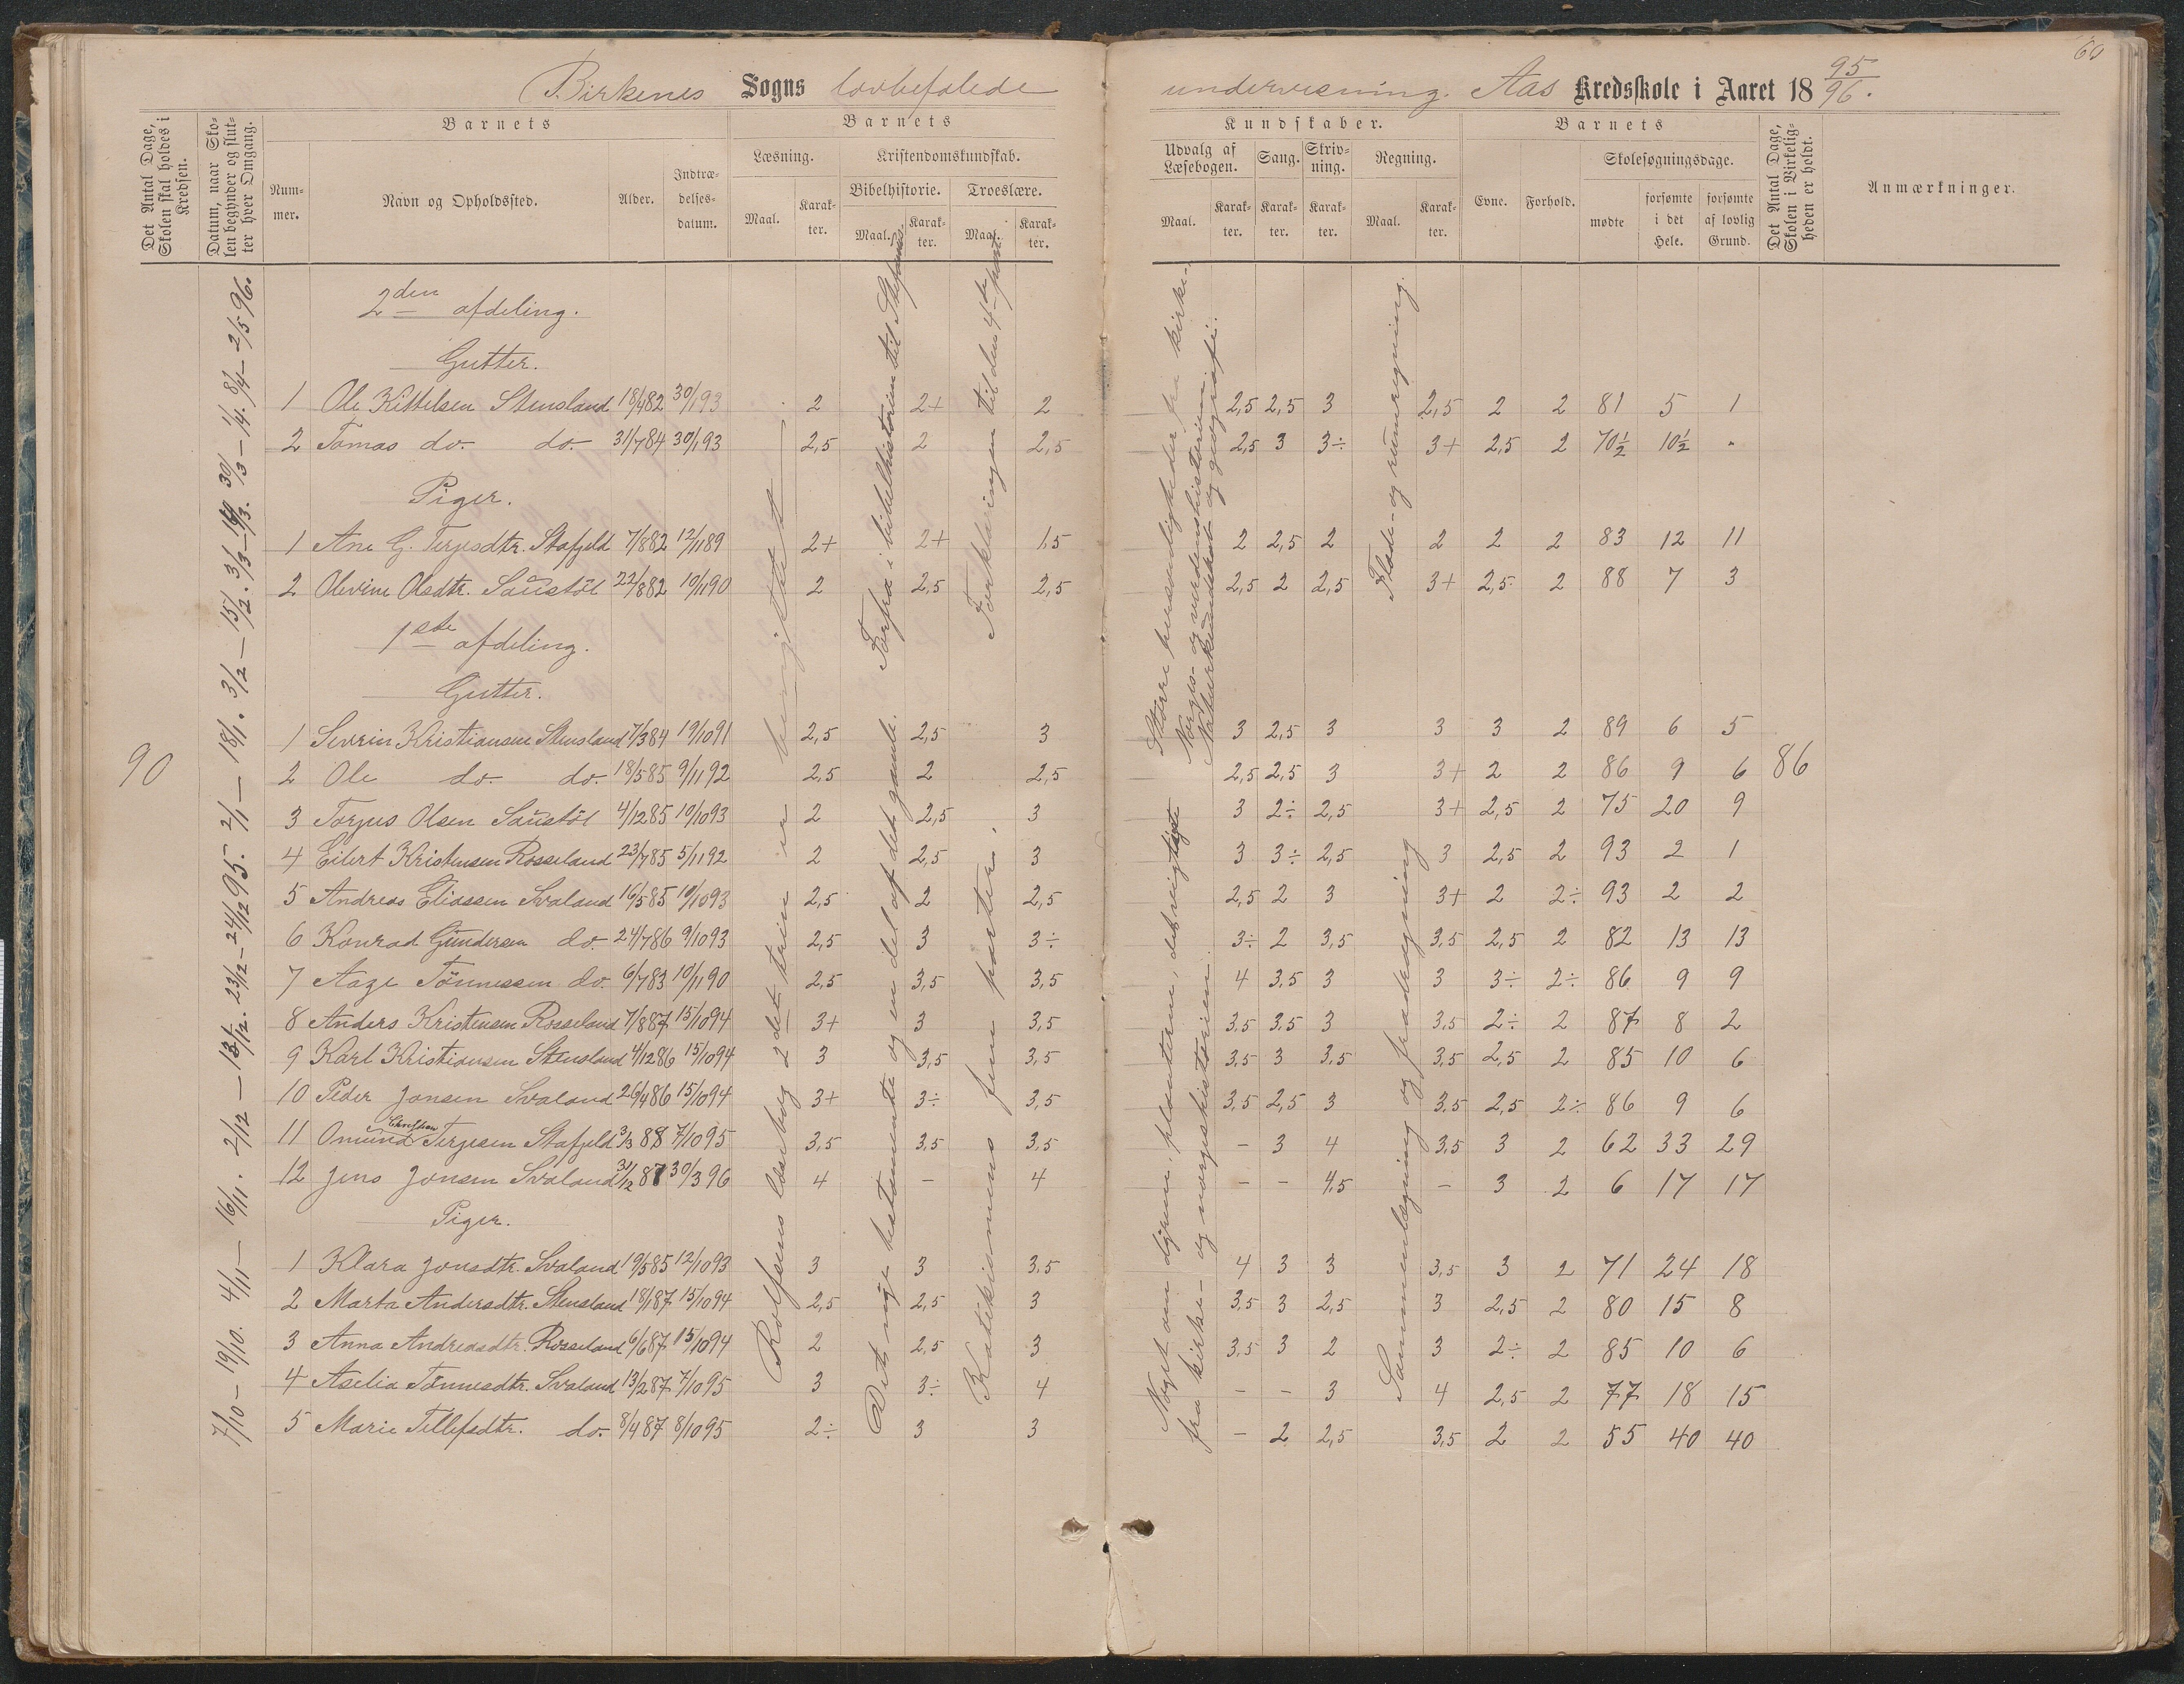 60
Birkenes Sogns lovbefalede undervisning. Aas Kredsskole i Aaret 18 95/96.
Det Antal Dage, Skolen skal holdes i Kredsen.
Datum, naar Skolen begynder og slutter hver Omgang.
Barnets
Nummer.
Navn og Opholdssted.
Alder.
Indtrædelsesdatum.
Barnets
Læsning.
Maal.
Karakter.
Kristendomskundskab.
Bibelhistorie.
Maal.
Karakter.
Troeslære.
Maal.
Karakter.
Kundskaber.
Udvalg af Læsebogen.
Maal.
Karakter.
Sang.
Karakter.
Skrivning.
Karakter.
Regning.
Maal.
Karakter.
Barnets
Evne.
Forhold.
Skolesøgningsdage.
mødte
forsømte i det Hele.
forsømte af lovlig Grund.
Det Antal Dage, Skolen i Virkeligheden er holdt.
Anmærkninger.
2den afdeling.
Gutter.
1 Ole Kittelsen Stensland 18/4 82 30/1 93 2 2+ 2 2,5 2,5 3 2,5 2 2 81 5 1
2 Tomas do. do. 31/7 84 30/1 93 2,5 2 2,5 2,5 3 3÷ 3+ 2,5 2 70½ 10½ "
Piger.
1 Ane G. Terjesdtr. Stafjeld 7/8 82 12/11 89 2+ 2+ 1,5 2 2,5 2 2 2 2 83 12 11
2 Olevine Olsdtr. Saustöl 22/8 82 10/11 90 2 2,5 2,5 2,5 2 2,5 3+ 2,5 2 88 7 3
1ste afdeling.
Gutter.
1 Severin Kristiansen Stensland 7/3 84 19/10 91 2,5 2,5 3 3 2,5 3 3 3 2 89 6 5
90
2 Ole do. do. 18/5 85 9/11 92 2,5 2 2,5 2,5 2,5 3 3+ 2 2 86 9 6 86
3 Torjus Olsen Saustöl 4/12 85 10/10 93 2 2,5 3 3 2÷ 2,5 3+ 2,5 2 75 20 9
4 Eilert Kristensen Rosseland 23/7 85 5/11 92 2 2,5 3 3 3÷ 2,5 3 2,5 2 93 2 1
5 Andreas Eliassen Svaland 16/5 85 10/10 93 2,5 2 2,5 2,5 2 3 3+ 2 2÷ 93 2 2
6 Konrad Gundersen do. 24/7 86 9/10 93 2,5 3 3÷ 3÷ 2 3,5 3,5 2,5 2 82 13 13
7 Aage Tönnessen do. 6/7 83 10/11 90 2,5 3,5 3,5 4 3,5 3 3 3÷ 2÷ 86 9 9
8 Anders Kristensen Rosseland 7/8 87 15/10 94 3+ 3 3,5 3,5 3,5 3 3,5 2÷ 2 87 8 2
9 Karl Kristiansen Stensland 4/12 86 15/10 94 3 3,5 3,5 3,5 3 3,5 3,5 2,5 2 85 10 6
10 Peder Jonsen Svaland 26/4 86 15/10 94 3+ 3÷ 3,5 3,5 2,5 3 3,5 2,5 2÷ 86 9 6
11 Omund Terjesen Stafjeld 3/3 88 7/10 95 3,5 3,5 3,5 – 3 4 3,5 3 2 62 33 29
12 Jens Jonsen Svaland 31/12 87 30/3 96 4 – 4 – – 4,5 – 3 2 6 17 17
Piger.
1 Klara Jonsdtr. Svaland 19/5 85 12/10 93 3 3 3,5 4 3 3 3,5 3 2 71 24 18
2 Marta Andersdtr. Stensland 18/1 87 15/10 94 2,5 2,5 3 3,5 3 2,5 3 2,5 2 80 15 8
3 Anna Andreasdtr. Rosseland 6/6 87 15/10 94 2 2,5 3 3,5 3 2 3 2÷ 2 85 10 6
4 Aselia Tönnesdtr. Svaland 13/2 87 7/10 95 3 3÷ 4 – – 3 4 2,5 2 77 18 15
5 Marie Tellefsdtr. do. 8/4 87 8/10 95 2÷ 3 3 – 2 2,5 3,5 2 2 55 40 40
7/10 – 19/10. 4/11 – 16/11. 2/12 – 13/12. 23/12 – 24/12 95. 2/1 – 18/1. 3/2 – 15/2. 3/3 – 14/3. 30/3 – 1/4. 8/4 – 2/5 96.
Rolfsens læsebog 2det trin er
Forfra i bibelhistorien til Stefanus.
Det nye testamente og en del af det gamle.
Forklaringen til den 4de part
Katekismens fem parter.
Större huslærdigheder fra kirke-,
Norges- og verdenshistorien.
Naturkundskab og geografi.
Noget om dyrene, planterne, det vigtigste
fra kirke- og norgeshistorien.
Flade- og rumregning.
Sammenlægning og fradragning